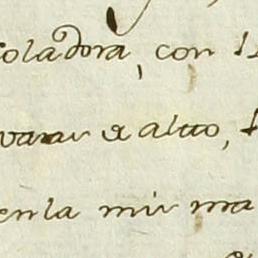 oladora, con
varas de alto,
en la mis ma